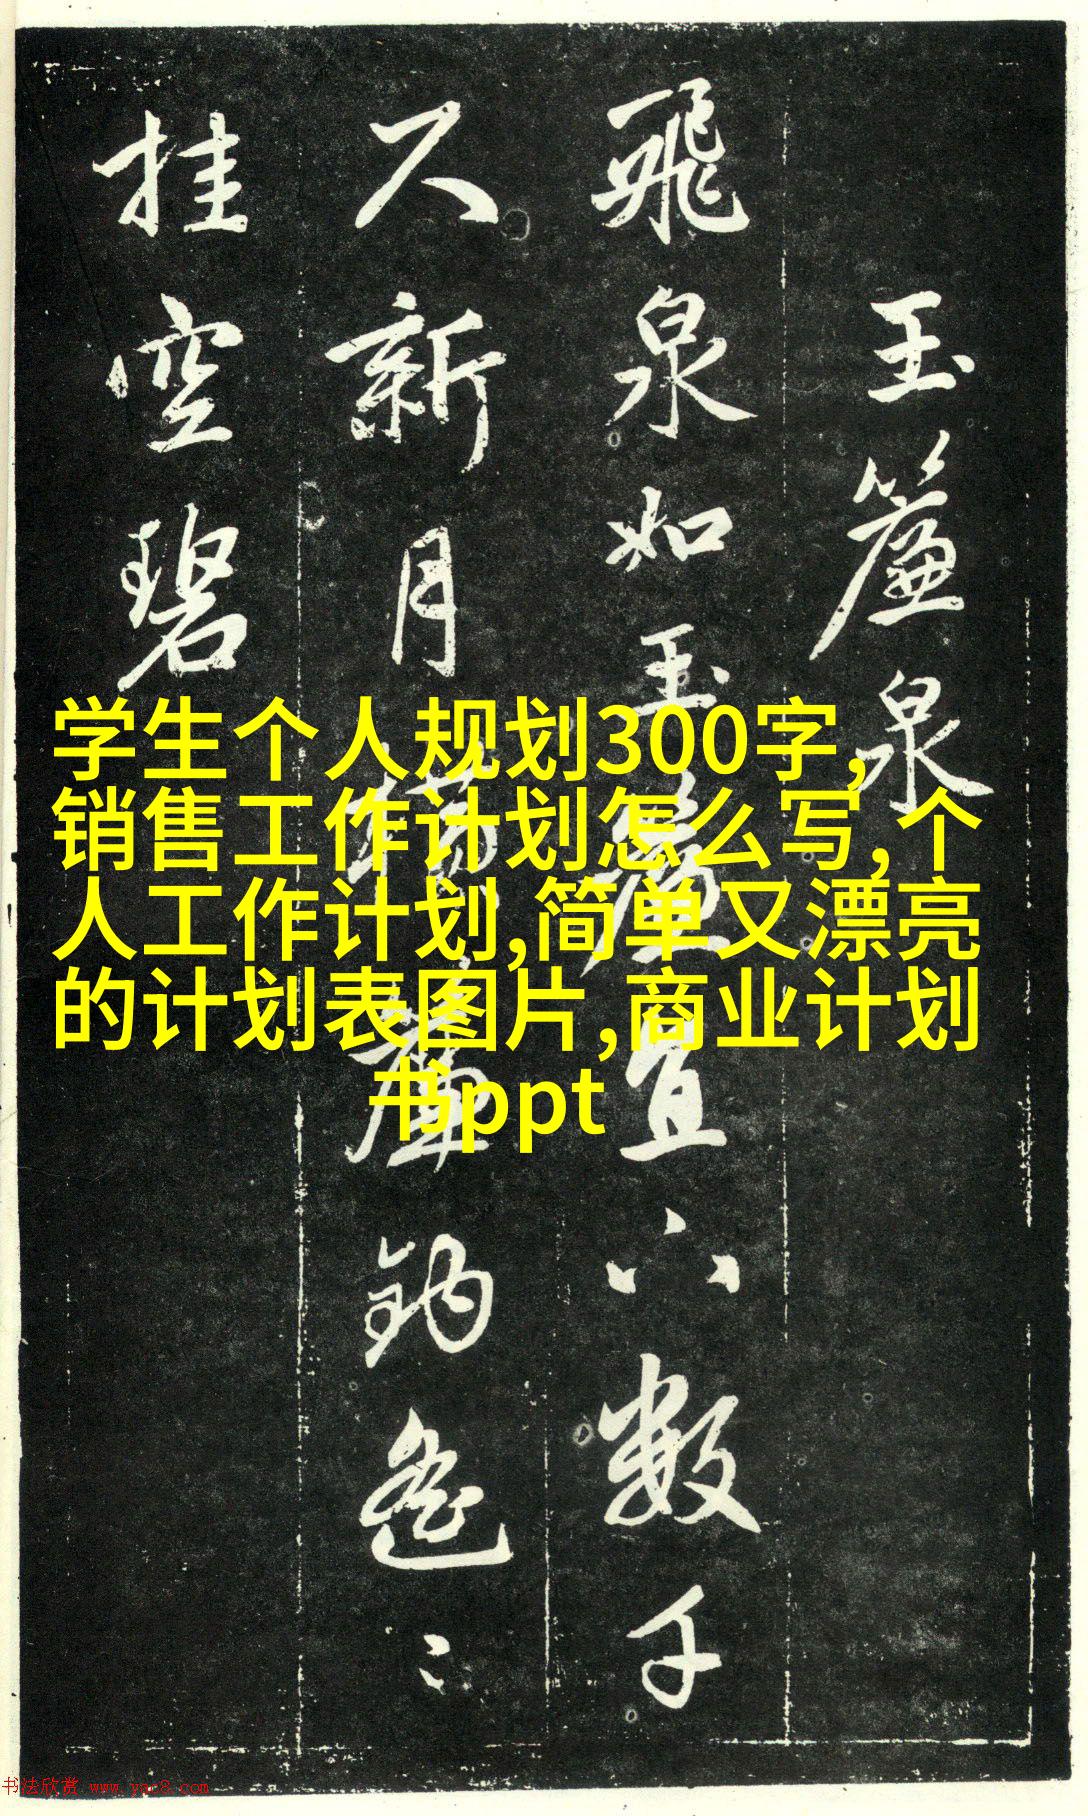 玉簾泉
飛泉如玉簾直下數千
尺新月横簾鈎遙〻
挂空碧
学生个人规划300字,
销售工作计划怎么写,个
人工作计划,简单又漂亮
的计划表图片,商业计划
书ppt
书法欣赏 www.yac8.com